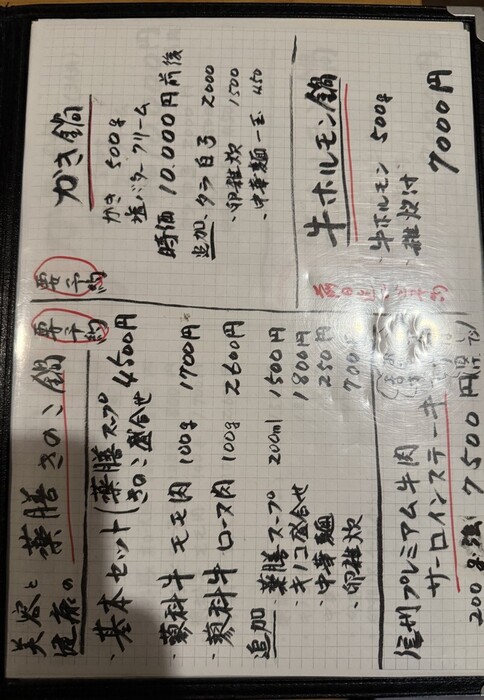 美容と
健康の
薬膳きのこ鍋
要予約
・基本セット(薬膳スープ
きのこ盛合せ 4500円
・蓼科牛 モモ肉 100g 1700円
・蓼科牛 ロース肉 100g 2600円
追加
・薬膳スープ 200ml 1500円
・キノコ盛合せ 1800円
・中華麺 250円
・卵雑炊 700
信州プレミアム牛肉
サーロインステーキ
200g 7500円
要予約
かき鍋
かき 500g
塩バタークリーム
時価 10.000円前後
追加、タラ白子 2000
・卵雑炊 1500
・中華麺一玉 450
牛ホルモン鍋
・牛ホルモン 500g
・雑炊付
7000円